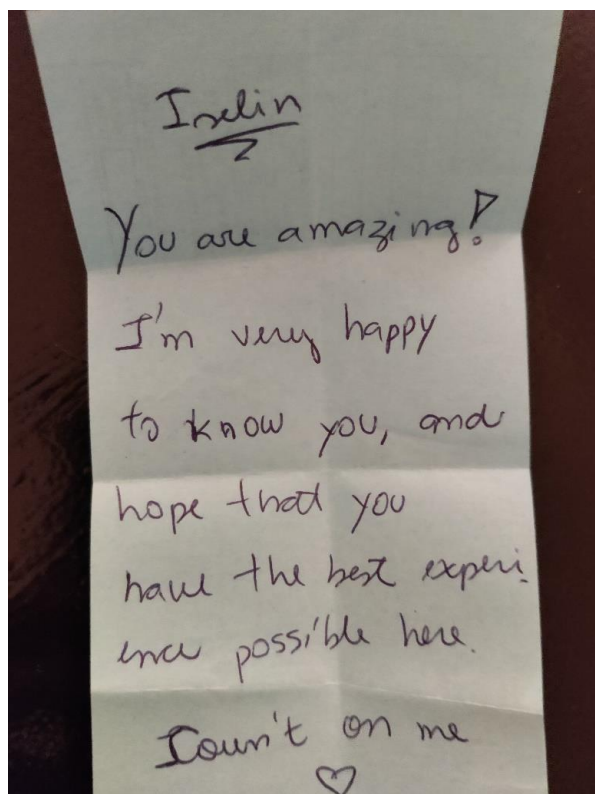 Iselin
You are amazing!
I'm very happy
to know you, and
hope that you
have the best experi
ence possible here.
Coun't on me